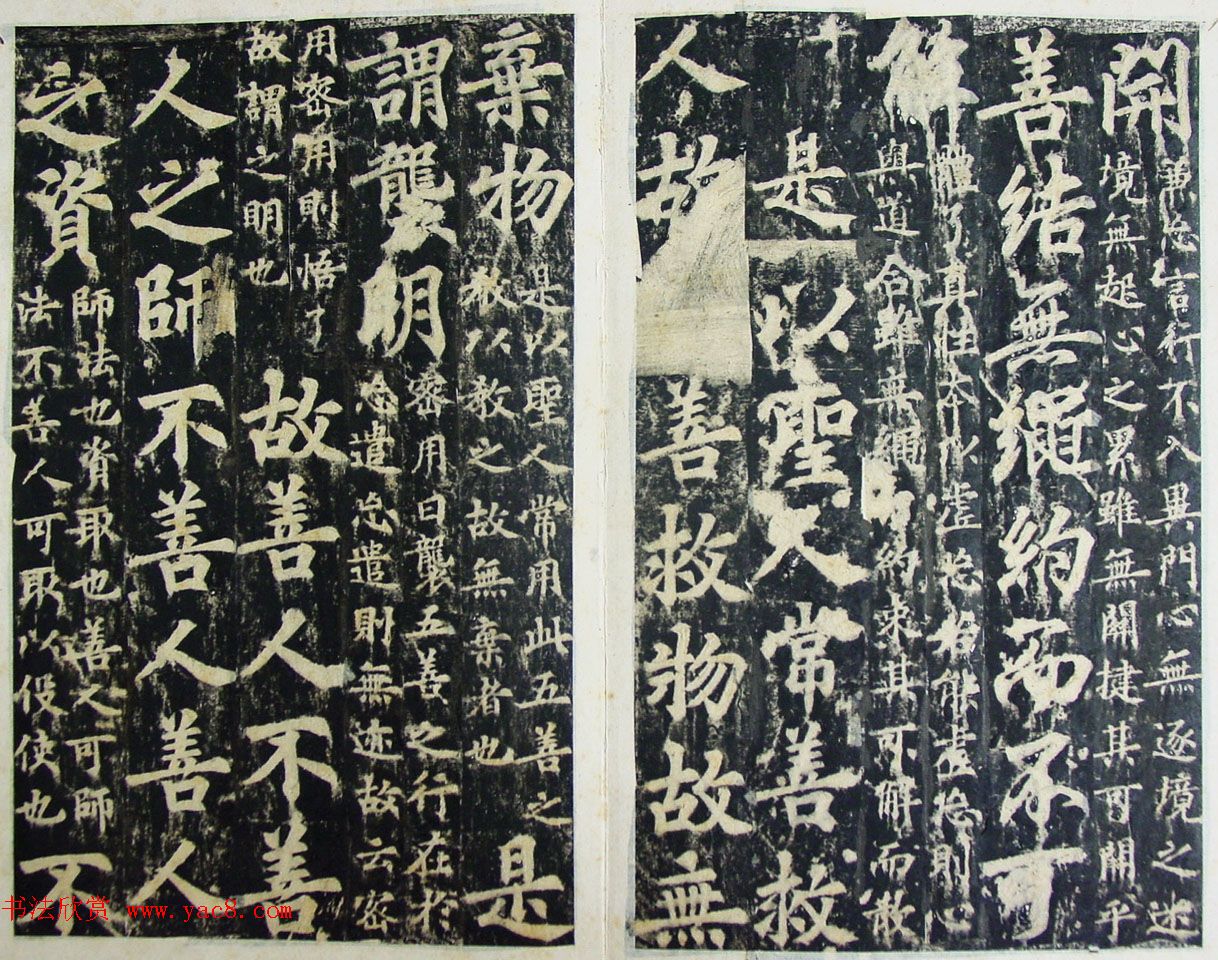 開
兼忘言行不入異門心無逐境之迷
境無起心之累雖無關揵其可開乎
善結無繩約而不可
解
體了真性本以虛忘若能虛忘則心
與道合雖無繩約束其可解而散
是以聖人常善救
人故善救物故無
棄物
是以聖人常用此五善之
教以教之故無棄者也
是
謂襲明
密用曰襲五善之行在於
忘遣忘遣則無迹故云密
用密用則悟了
故謂之明也
故善人不善
人之師不善人善人
之資
師法也資取也善人可師
法不善人可取以役使也
不
书法欣赏 www.yac8.com